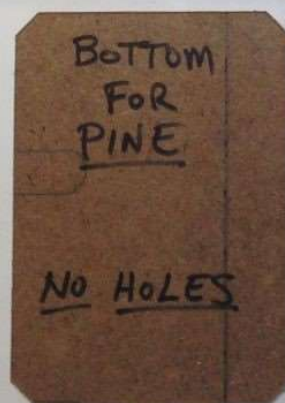 BOTTOM
FOR
PINE
NO HOLES